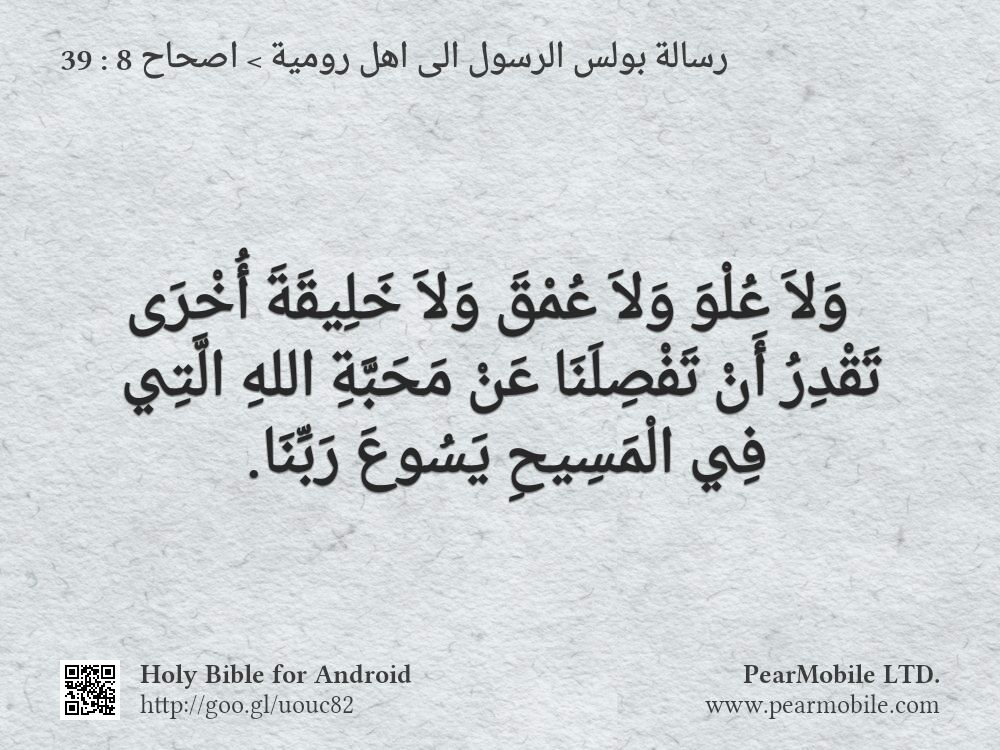 رسالة بولس الرسول الى اهل رومية > اصحاح 8 : 39
وَلاَ عُلْوَ وَلاَ عُمْقَ وَلاَ خَلِيقَةَ أُخْرَى
تَقْدِرُ أَنْ تَفْصِلَنَا عَنْ مَحَبَّةِ اللهِ الَّتِي
فِي الْمَسِيحِ يَسُوعَ رَبِّنَا.
Holy Bible for Android
http://goo.gl/uouc82
PearMobile LTD.
www.pearmobile.com